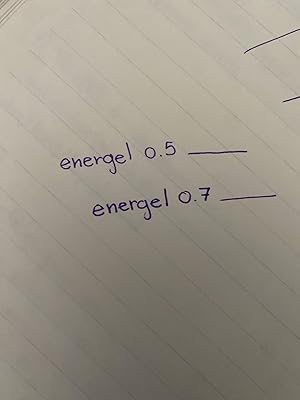 energel 0.5
energel 0.7